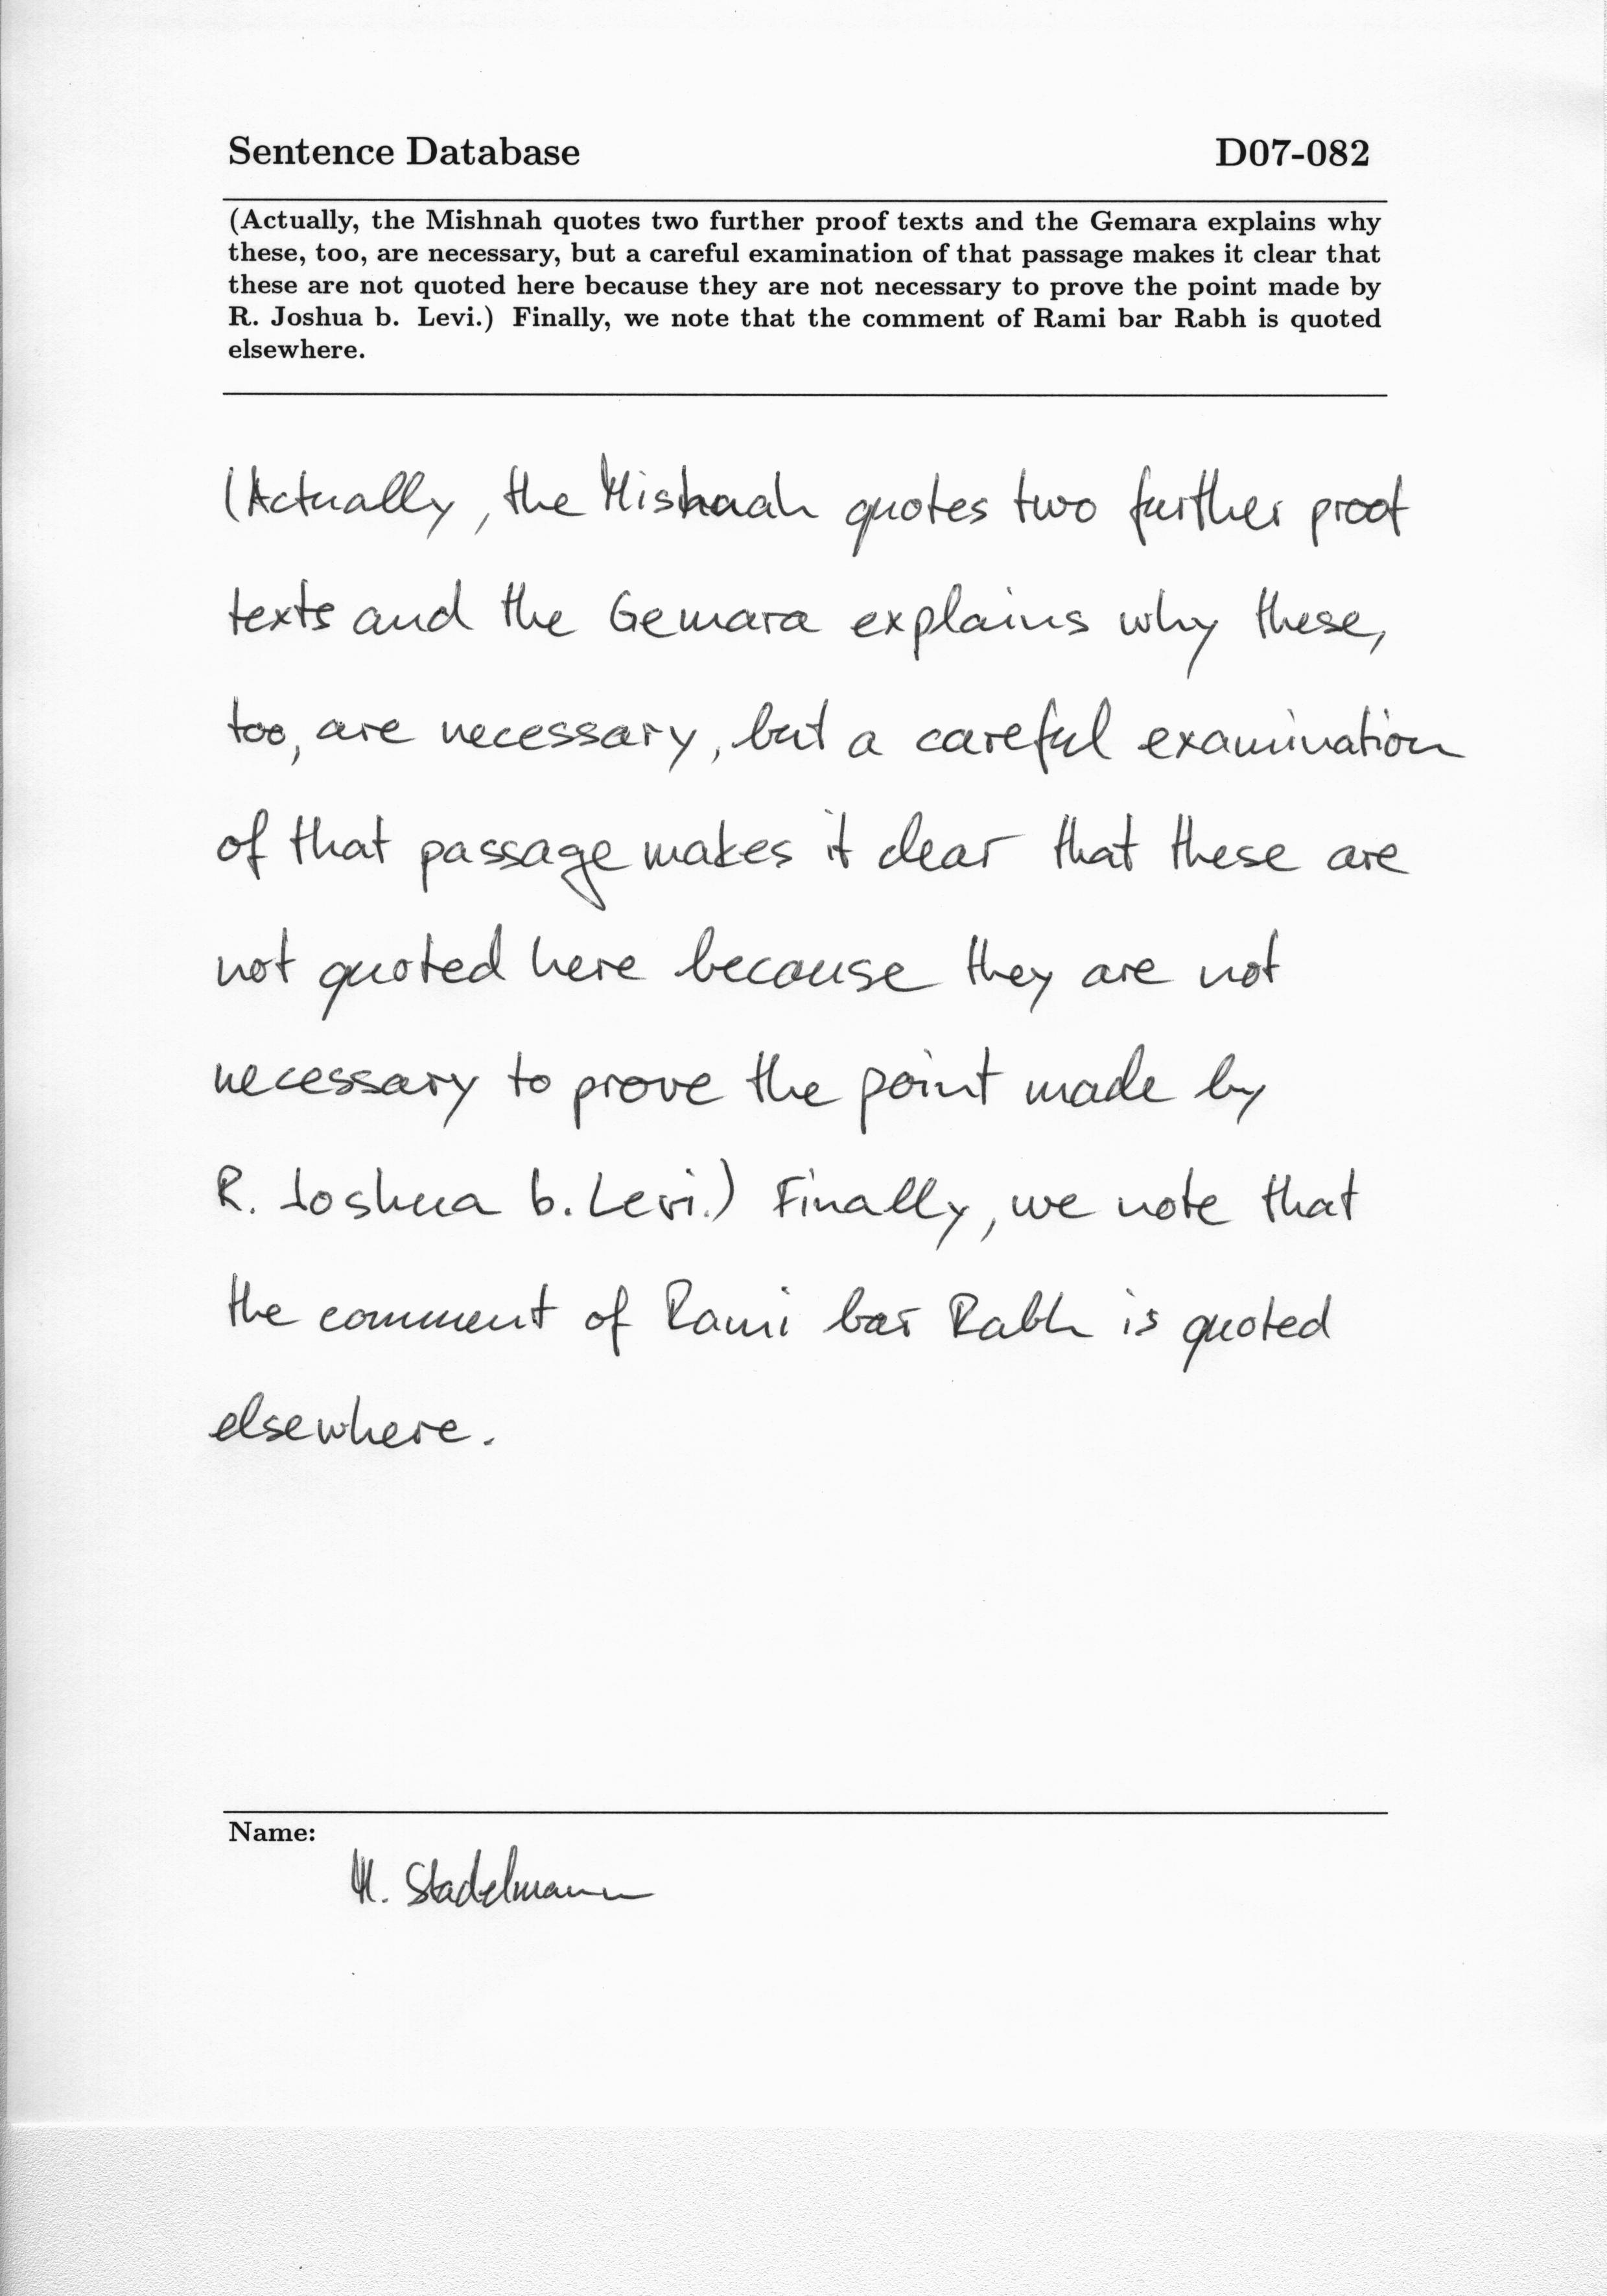 Sentence Database D07-082
(Actually, the Mishnah quotes two further proof texts and the Gemara explains why
these, too, are necessary, but a careful examination of that passage makes it clear that
these are not quoted here because they are not necessary to prove the point made by
R. Joshua b. Levi.) Finally, we note that the comment of Rami bar Rabh is quoted
elsewhere.
(Actually, the Mishnah quotes two further proof
texts and the Gemara explains why these,
too, are necessary, but a careful examination
of that passage makes it clear that these are
not quoted here because they are not
necessary to prove the point made by
R. Joshua b. Levi.) Finally, we note that
the comment of Rami bar Rabh is quoted
elsewhere.
Name:
M. Stadelmann